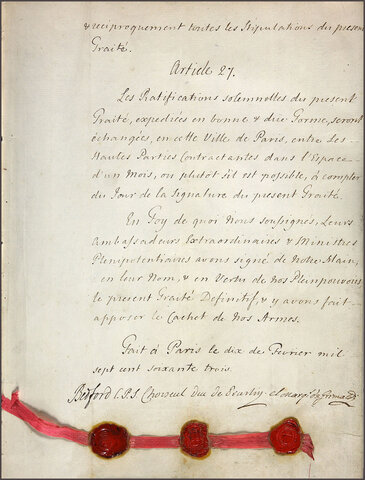 & réciproquement toutes les Stipulations du présent
Traité.
Article 27.
Les Ratifications solemnelles du présent
Traité, expediées en bonne & due Forme, seront
échangées, en cette Ville de Paris, entre Les
Hautes Parties Contractantes dans l'Espace
d'un Mois, ou plutôt s'il est possible, à compter
du Jour de la Signature du présent Traité.
En Foy de quoi Nous soussignés, Leurs
Ambassadeurs Extraordinaires & Ministres
Plenipotentiaires avons signé de Notre Main,
en leur Nom, & en Vertu de nos Pleinpouvoirs
le present Traité Definitif, & y avons fait
apposer le Cachet de Nos Armes.
Fait à Paris le dix de Fevrier mil
sept cent soixante trois.
Bedford C.P.S. Choiseul Duc de Praslin el Marqs de Grimaldi